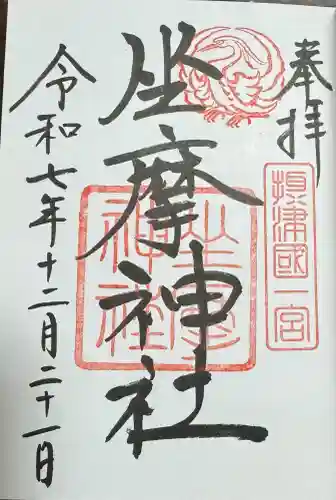 奉拝
摂津國一宮
坐摩神社
坐摩神社
令和七年十二月二十一日